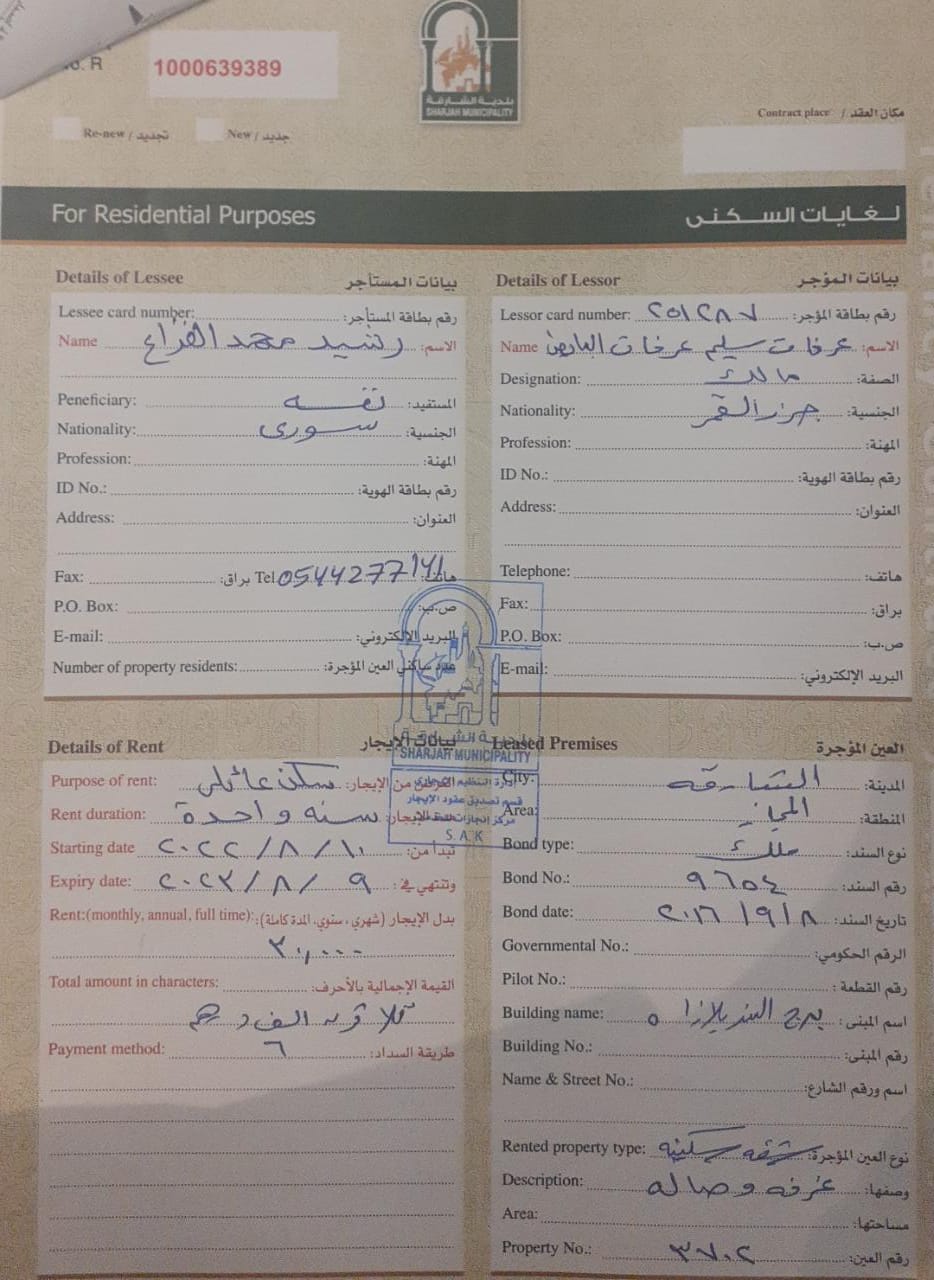 No. R
1000639389
بلدية الشارقة
SHARJAH MUNICIPALITY
Re-new / تجديد
New / جديد
Contract place / مكان العقد
For Residential Purposes
لغايات السكنى
Details of Lessee
بيانات المستأجر
Lessee card number: رقم بطاقة المستأجر:
Name رشيد محمد الفراع الاسم:
Peneficiary: نفسه المستفيد:
Nationality: سوري الجنسية:
Profession: المهنة:
ID No.: رقم بطاقة الهوية:
Address: العنوان:
Fax: براق: Tel 0544277141 هاتف:
P.O. Box: ص.ب:
E-mail: البريد الإلكتروني:
Number of property residents: عدد ساكني العين المؤجرة:
Details of Lessor
بيانات المؤجر
Lessor card number: ٢٥١٢٨٧ رقم بطاقة المؤجر:
Name عرفات سليم عرفات الاسم:
Designation: مالك الصفة:
Nationality: جزر القمر الجنسية:
Profession: المهنة:
ID No.: رقم بطاقة الهوية:
Address: العنوان:
Telephone: هاتف:
Fax: براق:
P.O. Box: ص.ب:
E-mail: البريد الإلكتروني:
بلدية الشارقة
SHARJAH MUNICIPALITY
قسم تصديق عقود الإيجار
S.A.K
Details of Rent
بيانات الإيجار
Purpose of rent: سكن عائلي الغرض من الإيجار:
Rent duration: سنة واحدة مدة الإيجار:
Starting date ٢٠٢٢/٨/١٠ تبدأ من:
Expiry date: ٢٠٢٣/٨/٩ وتنتهي في:
Rent:(monthly, annual, full time): بدل الإيجار (شهري، سنوي، المدة كاملة):
٣٠,٠٠٠
Total amount in characters: القيمة الإجمالية بالأحرف:
ثلاثون الف درهم
Payment method: ٦ طريقة السداد:
Leased Premises
العين المؤجرة
City: الشارقة المدينة:
Area: المجاز المنطقة:
Bond type: ملك نوع السند:
Bond No.: ٩٦٥٤ رقم السند:
Bond date: ٢٠١٦/٩/٨ تاريخ السند:
Governmental No.: الرقم الحكومي:
Pilot No.: رقم القطعة:
Building name: برج اسم المبنى:
Building No.: رقم المبنى:
Name & Street No.: اسم ورقم الشارع:
Rented property type: شقة سكنية نوع العين المؤجرة:
Description: غرفه وصاله وصفها:
Area: مساحتها:
Property No.: ٣٧٠٢ رقم العين: